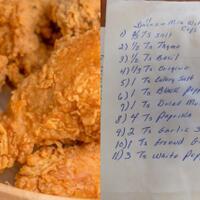 2 Cups
1) 2/3 Ts Salt
2) 1/2 Ts Thyme
3) 1/2 Ts Basil
4) 1/3 Ts Oregino
5) 1 Ts Celery Salt
6) 1 Ts Black Pepp
7) 1 Ts Dried Mus
8) 4 Ts Paprika
9) 2 Ts Garlic S
10) 1 Ts Ground G
11) 3 Ts White Pep